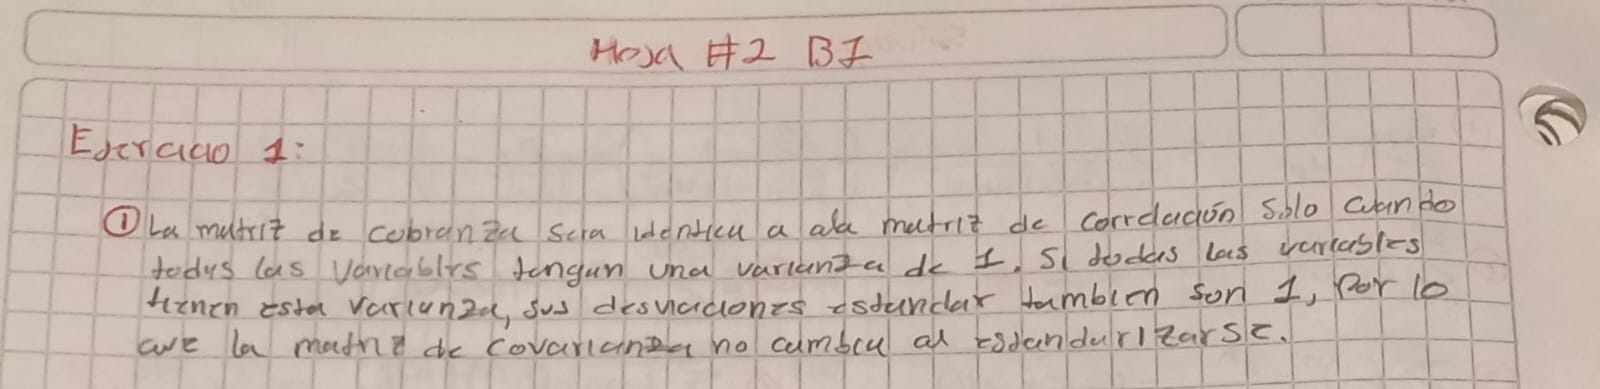 Hoja #2 BI
Ejercicio 1:
① La matriz de cobranza sera identica a ala matriz de correlación solo cuando
todas las variables tengan una varianza de 1. Si todas las variables
tienen esta varianza, sus desviaciones estandar tambien son 1, por lo
que la matriz de covarianza no cambia al estandarizarse.